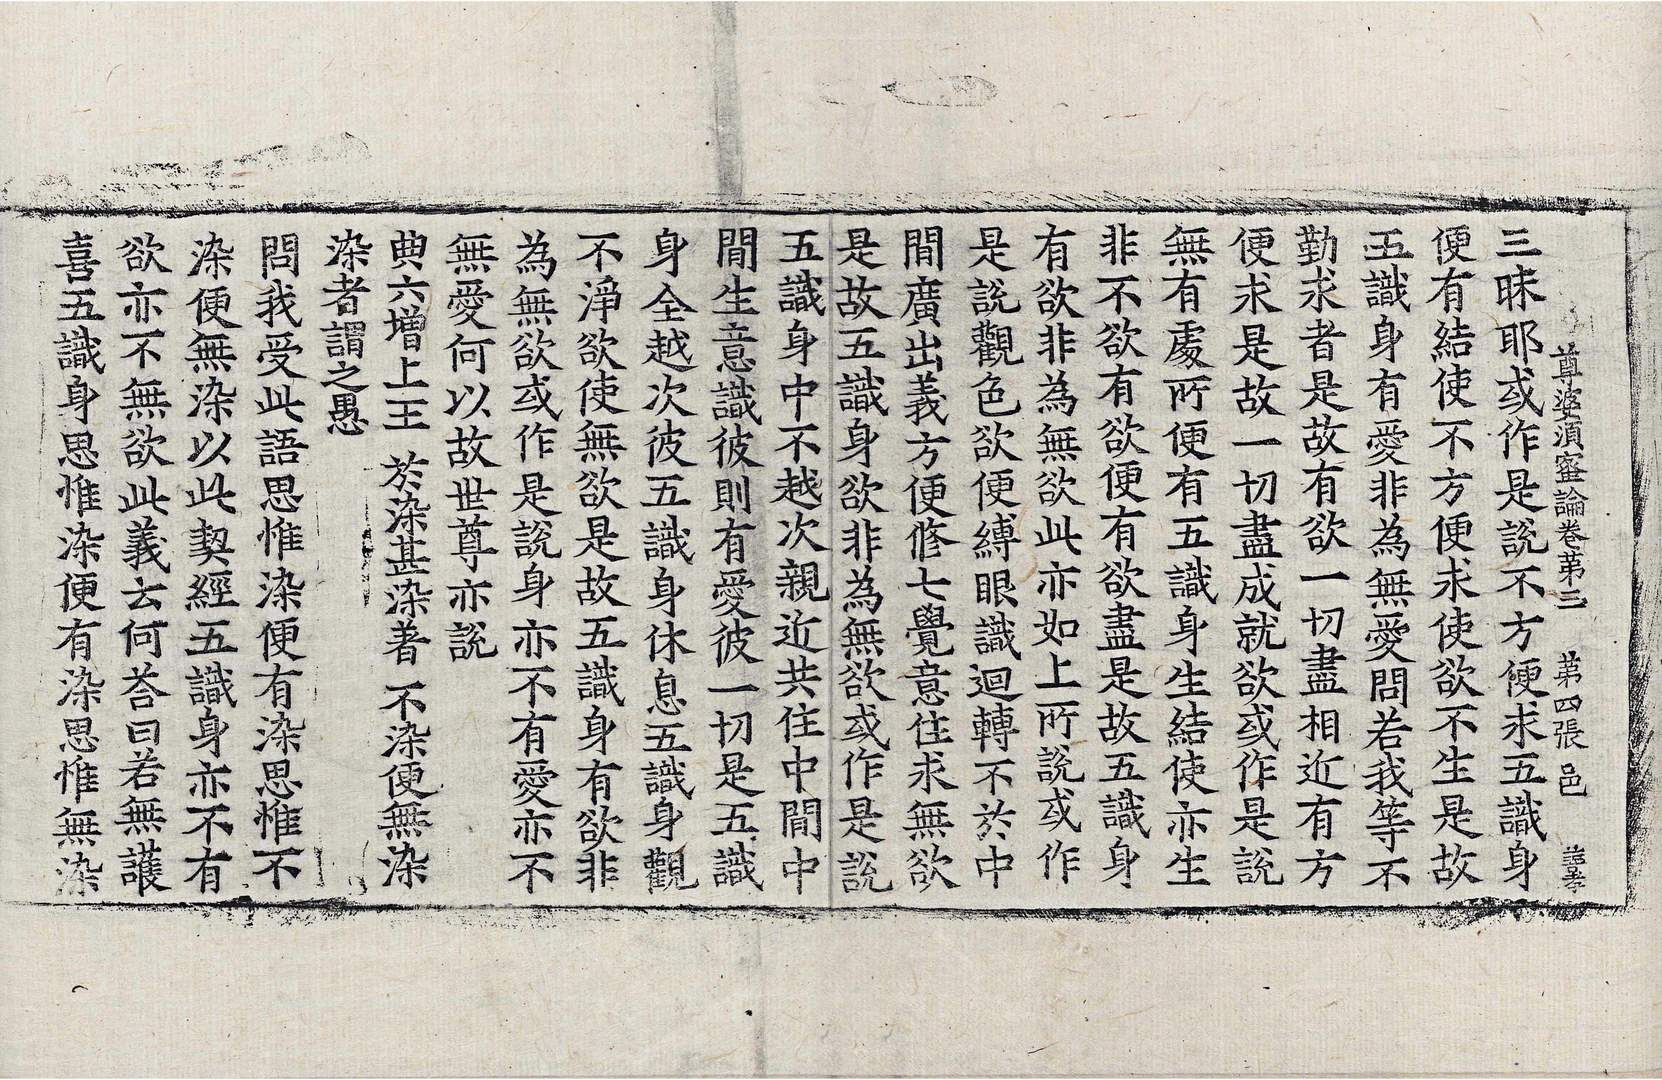 尊婆湏蜜論卷第二　第四張　邑
三昧耶或作是說不方便求五識身
便有結使不方便求使欲不生是故
五識身有愛非為無愛問若我等不
勤求者是故有欲一切盡相近有方
便求是故一切盡成就欲或作是說
無有處所便有五識身生結使亦生
非不欲有欲便有欲盡是故五識身
有欲非為無欲此亦如上所說或作
是說觀色欲便縛眼識迴轉不於中
間廣出義方便修七覺意住求無欲
是故五識身欲非為無欲或作是說
五識身中不越次親近共住中間中
間生意識彼則有愛彼一切是五識
身全越次彼五識身休息五識身觀
不淨欲使無欲是故五識身有欲非
為無欲或作是說身亦不有愛亦不
無愛何以故世尊亦說
典六增上王　於染甚染著　不染便無染
染者謂之愚
問我受此語思惟染便有染思惟不
染便無染以此契經五識身亦不有
欲亦不無欲此義云何荅曰若無護
喜五識身思惟染便有染思惟無染